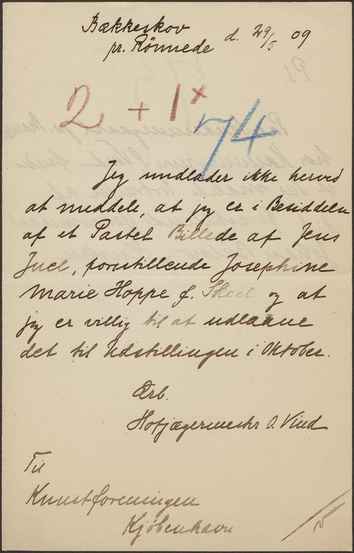 Bækkeskov
pr. Rönnede d. 29/5 09
2 + 1 x
74
Jeg undlader ikke herved
at meddele, at jeg er i Besiddelse
af et Pastel Billede af Jens
Juel, forestillende Josephine
Marie Hoppe f. Skeel og at
jeg er villig til at udlaane
det til Udstillingen i Oktober.
Ærb.
Hofjægermestr O. Vind
Til
Kunstforeningen
Kjöbenhavn